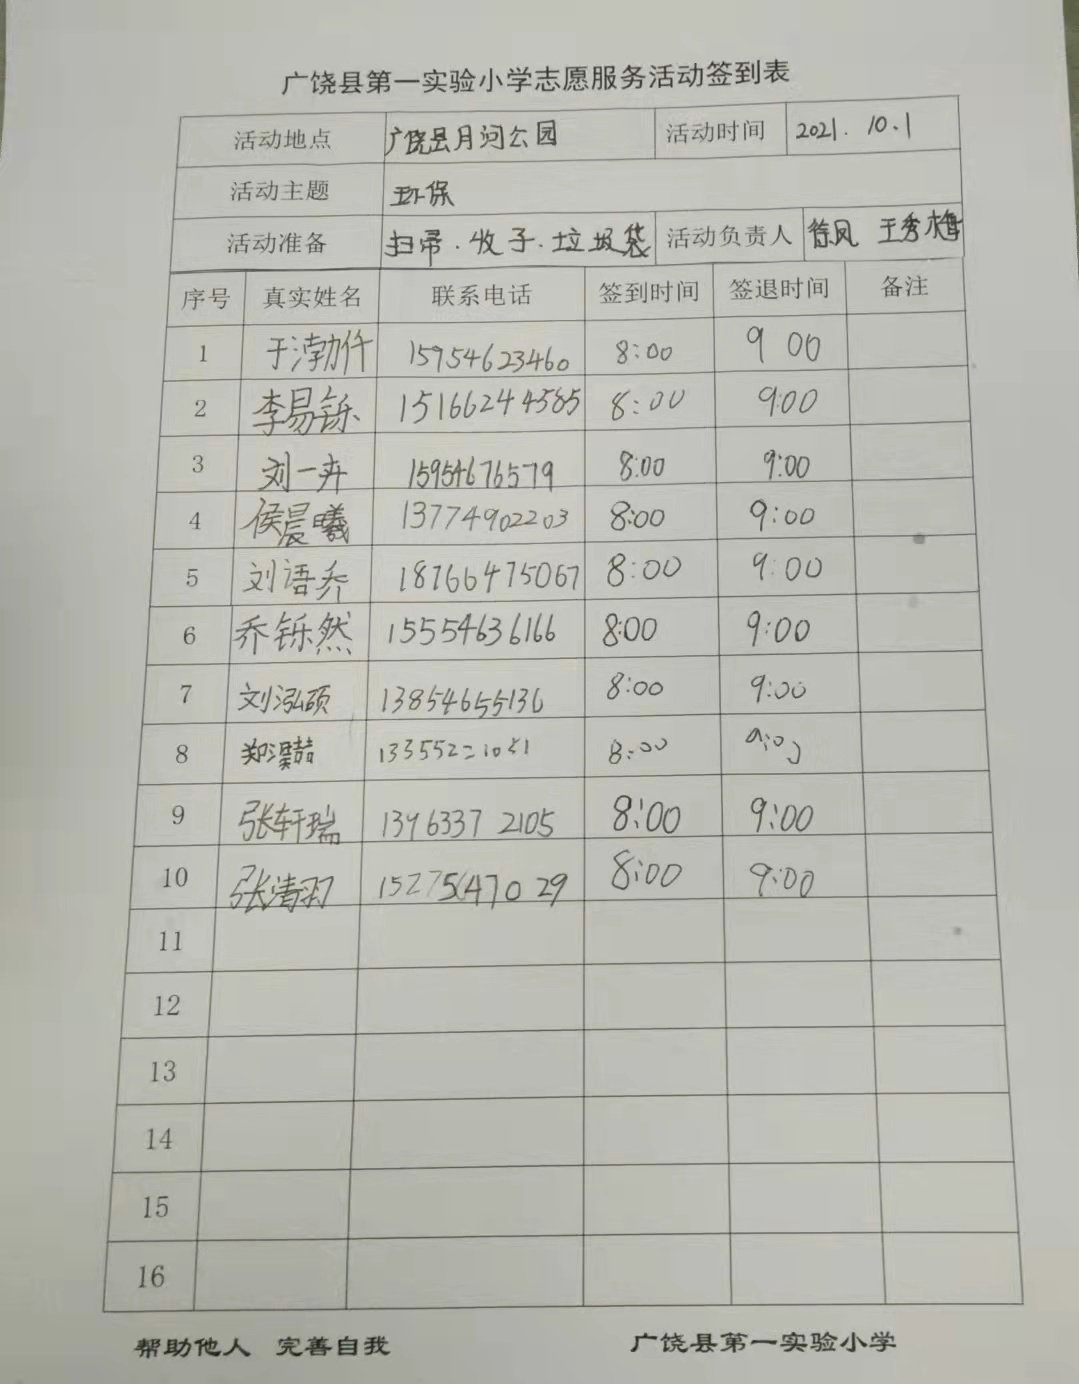 广饶县第一实验小学志愿服务活动签到表
活动地点 广饶县月河公园 活动时间 2021.10.1
活动主题 环保
活动准备 扫帚.收子.垃圾袋 活动负责人 徐凤 王秀梅
序号 真实姓名 联系电话 签到时间 签退时间 备注
1 于渤仟 15954623460 8:00 9 00
2 李易铄 15166244585 8:00 9:00
3 刘一卉 15954676579 8:00 9:00
4 侯晨曦 13774902203 8:00 9:00
5 刘语乔 18766475067 8:00 9:00
6 乔铄然 15554636166 8:00 9:00
7 刘泓硕 13854655136 8:00 9:00
8 8:00 9:00
9 张轩瑞 1396337 2105 8:00 9:00
10 张清羽 15275647029 8:00 9:00
11
12
13
14
15
16
帮助他人 完善自我 广饶县第一实验小学